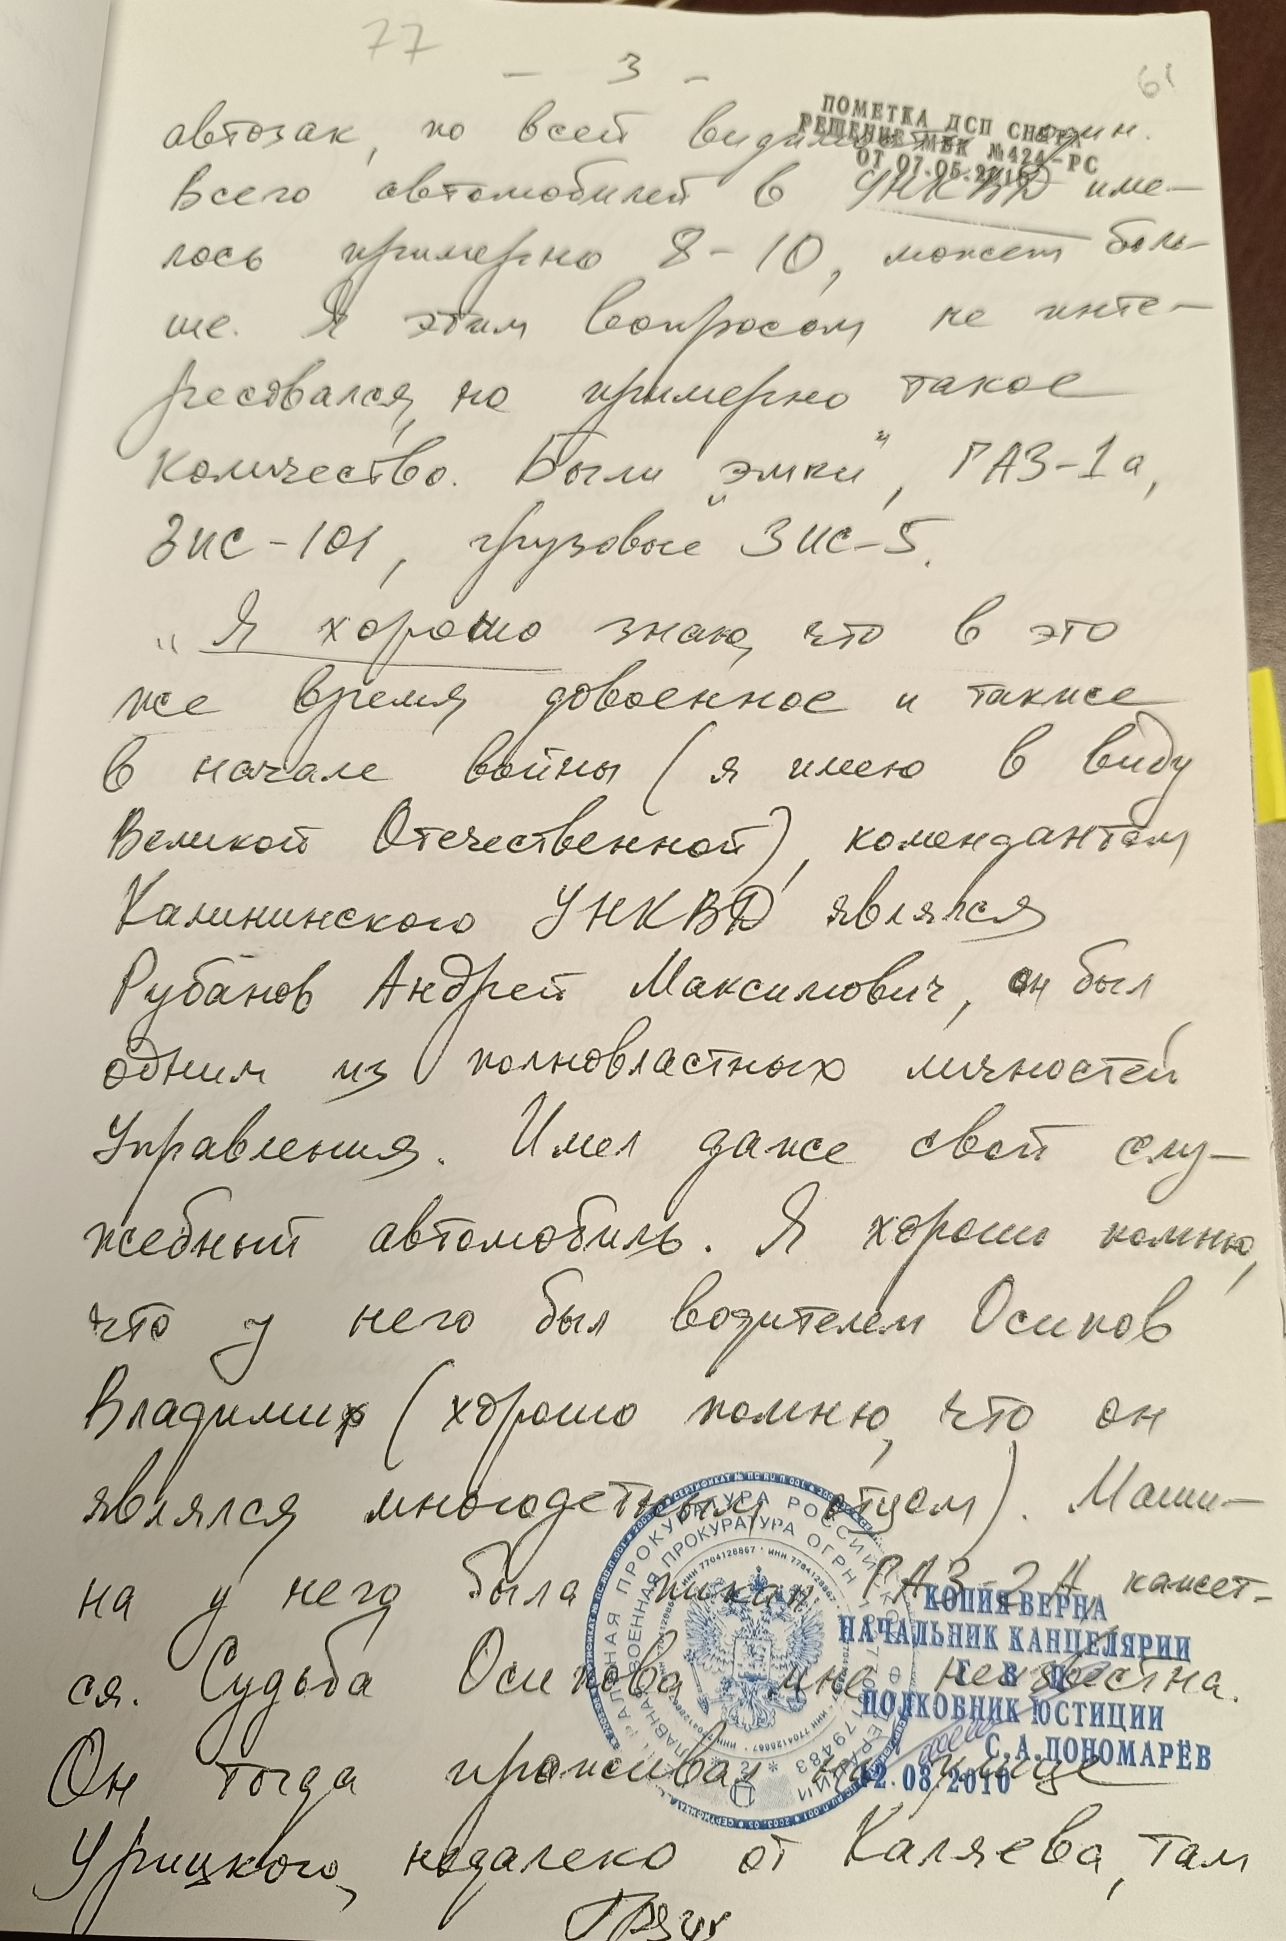 77
- 3 -
61
ПОМЕТКА ДСП СНЯТА
РЕШЕНИЕ МВК №424-РС
ОТ 07.05.2010
автозак, по всей видимости один.
Всего автомобилей в УНКВД име-
лось примерно 8-10, может боль-
ше. Я этим вопросом не инте-
ресовался, но примерно такое
количество. Были „эмки", ГАЗ-1а,
ЗИС-101, грузовые ЗИС-5.
„Я хорошо знаю, что в это
же время довоенное и также
в начале войны (я имею в виду
Великой Отечественной), комендантом
Калининского УНКВД являлся
Рубанов Андрей Максимович, он был
одним из полновластных личностей
Управления. Имел даже свой слу-
жебный автомобиль. Я хорошо помню,
что у него был водителем Осипов
Владимир (хорошо помню, что он
являлся многодетным отцом). Маши-
на у него была пикап ГАЗ-2А кажет-
ся. Судьба Осипова мне неизвестна.
Он тогда проживал на улице
Урицкого, недалеко от Каляева, там
КОПИЯ ВЕРНА
НАЧАЛЬНИК КАНЦЕЛЯРИИ
Г В П
ПОЛКОВНИК ЮСТИЦИИ
С.А.ПОНОМАРЁВ
12.08.2010